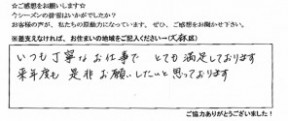 ☆ご感想をお願いします☆
今シーズンの
はいかがでしたか？
お客様の声が、私たちの原動力になっています。ぜひ、ご感想をお聞かせ下さい。
※差支えなければ、お住まいの地域をご記入ください→(
いつも丁寧なお仕事で とても満足しております
来年度も 是非お願いしたいと思っております
ご協力ありがとうございました！